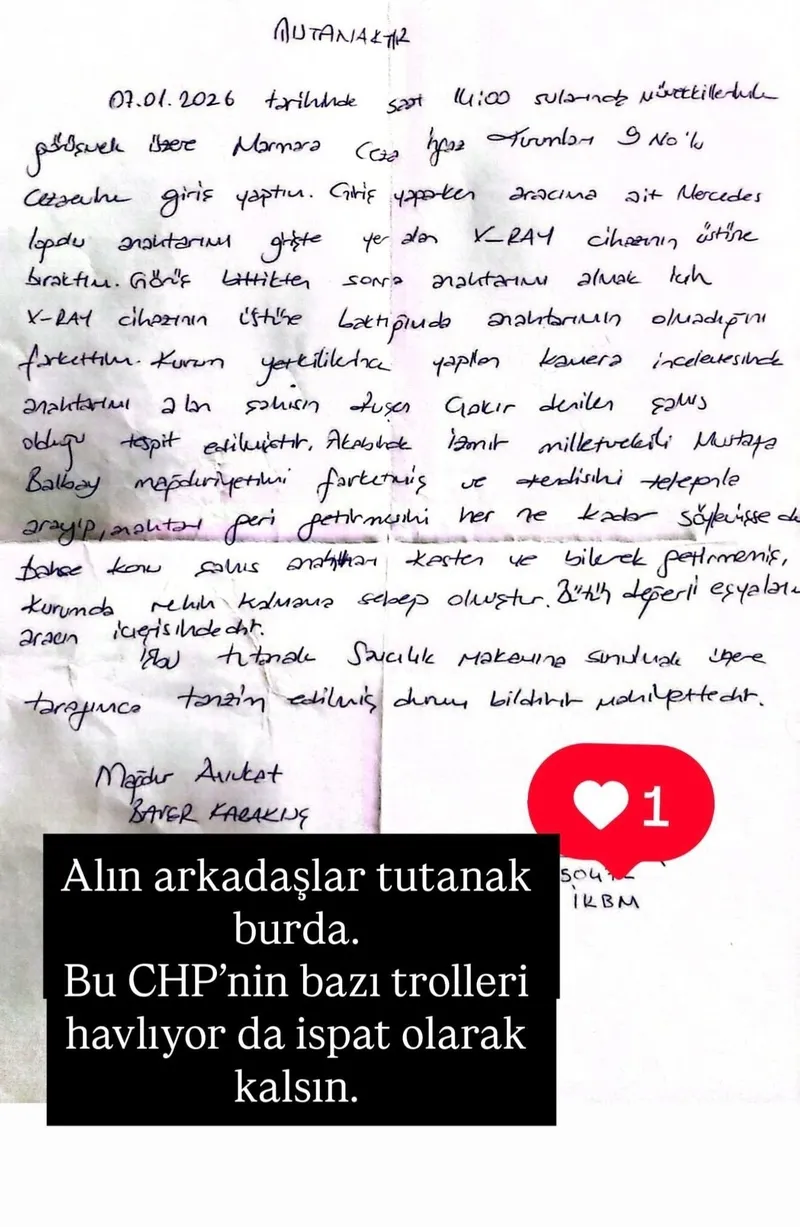 TUTANAKTIR
07.01.2026 tarihinde saat 14:00 sularında müvekkillerimle
görüşmek üzere Marmara Ceza İnfaz Kurumları 9 No'lu
Cezaevine giriş yaptım. Giriş yaparken aracıma ait Mercedes
logolu anahtarımı girişte yer alan X-RAY cihazının üstüne
bıraktım. Görüş bittikten sonra anahtarımı almak için
X-RAY cihazının üstüne baktığımda anahtarımın olmadığını
farkettim. Kurum yetkililerince yapılan kamera incelemesinde
anahtarımı alan şahısın Çakır denilen şahıs
olduğu tespit edilmiştir. Akabinde İzmir milletvekili Mustafa
Balbay mağduriyetimi farketmiş ve kendisini telefonla
arayıp, anahtarı geri getirmesini her ne kadar söylemişse de
bahse konu şahıs anahtarı kasten ve bilerek getirmemiş,
kurumda rehin kalmama sebep olmuştur. Bütün değerli eşyalarım
aracın içerisindedir.
İşbu tutanak Savcılık Makamına sunulmak üzere
tarafımca tanzim edilmiş durum bildirir mahiyettedir.
Mağdur Avukat
BAVER KARAKUŞ
1
İKBM
Alın arkadaşlar tutanak
burda.
Bu CHP'nin bazı trolleri
havlıyor da ispat olarak
kalsın.